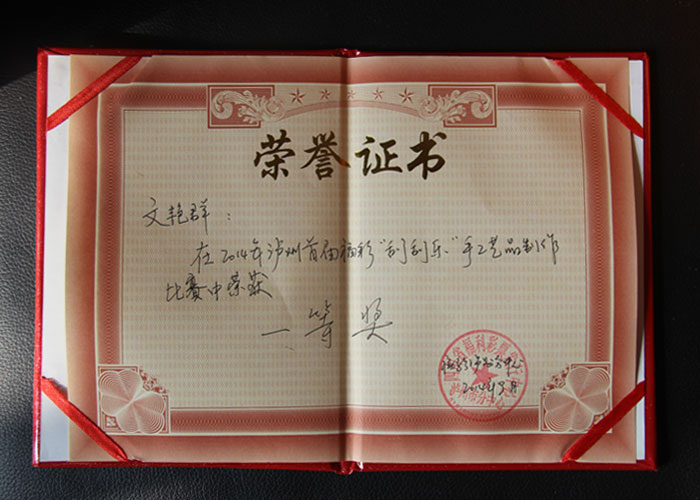 荣誉证书
文艳群：
在2014年泸州首届福彩“刮刮乐”手工艺品制作
比赛中荣获
一等奖
2014年9月